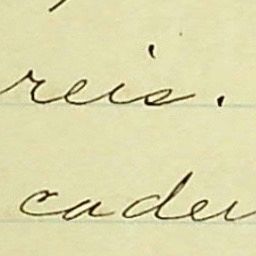 reis.
cader